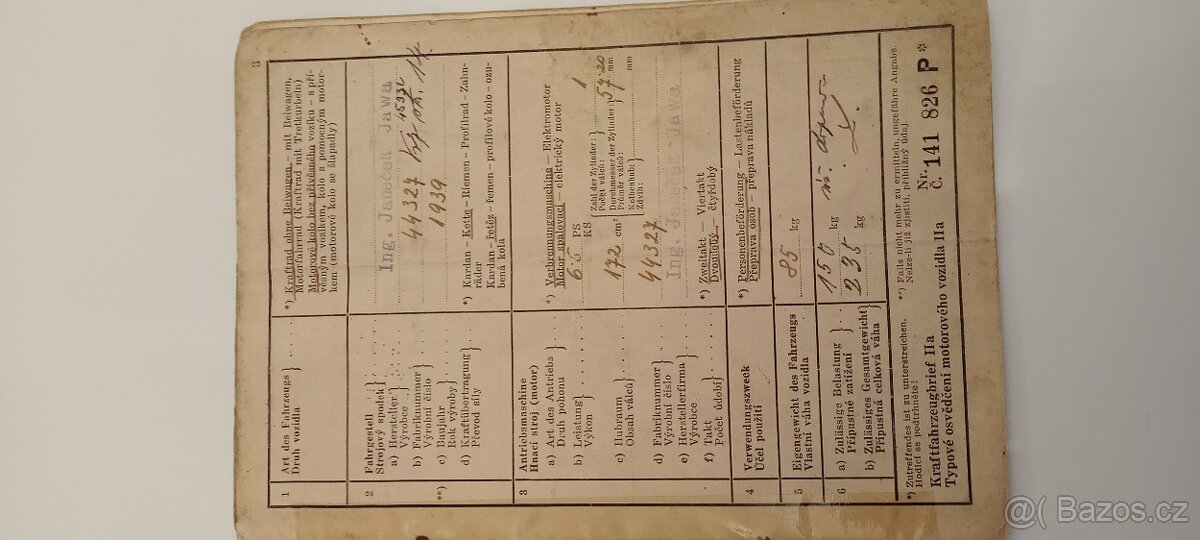 3
1 Art des Fahrzeugs
Druh vozidla
*) Kraftrad ohne Beiwagen - mit Beiwagen,
Motorfahrrad (Kraftrad mit Tretkurbeln)
Motorové kolo bez přívěsného vozíku - s pří-
věsným vozíkem, kolo s pomocným motor-
kem (motorové kolo se šlapadly)
2 Fahrgestell
Strojový spodek
a) Hersteller
Výrobce
Ing. Janeček Jawa
b) Fabriknummer
Výrobní číslo
44327
**) c) Baujahr
Rok výroby
1939
d) Kraftübertragung
Převod síly
*) Kardan - Kette - Riemen - Profilrad - Zahn-
räder
Kardan - řetěz - řemen - profilové kolo - ozu-
bená kola
3 Antriebsmaschine
Hnací stroj (motor)
a) Art des Antriebs
Druh pohonu
*) Verbrennungsmaschine - Elektromotor
Motor spalovací - elektrický motor
b) Leistung
Výkon
PS
KS
Zahl der Zylinder:
Počet válců:
1
c) Hubraum
Obsah válců
172 cm³
Durchmesser der Zylinder:
Průměr válců:
mm
Kolbenhub:
Zdvih:
mm
d) Fabriknummer
Výrobní číslo
44327
e) Herstellerfirma
Výrobce
Ing. Janeček Jawa
f) Takt
Počet údobí
*) Zweitakt - Viertakt
Dvoudobý - čtyřdobý
4 Verwendungszweck
Účel použití
*) Personenbeförderung - Lastenbeförderung
Přeprava osob - přeprava nákladů
5 Eigengewicht des Fahrzeugs
Vlastní váha vozidla
85 kg
6 a) Zulässige Belastung
Přípustné zatížení
150 kg
b) Zulässiges Gesamtgewicht
Přípustná celková váha
235 kg
*) Zutreffendes ist zu unterstreichen.
Hodící se podtrhněte!
**) Falls nicht mehr zu ermitteln, ungefähre Angabe.
Nelze-li již zjistiti, přibližný údaj.
Kraftfahrzeugbrief IIa
Typové osvědčení motorového vozidla IIa
Nr.
č. 141 826 P *
@ Bazos.cz